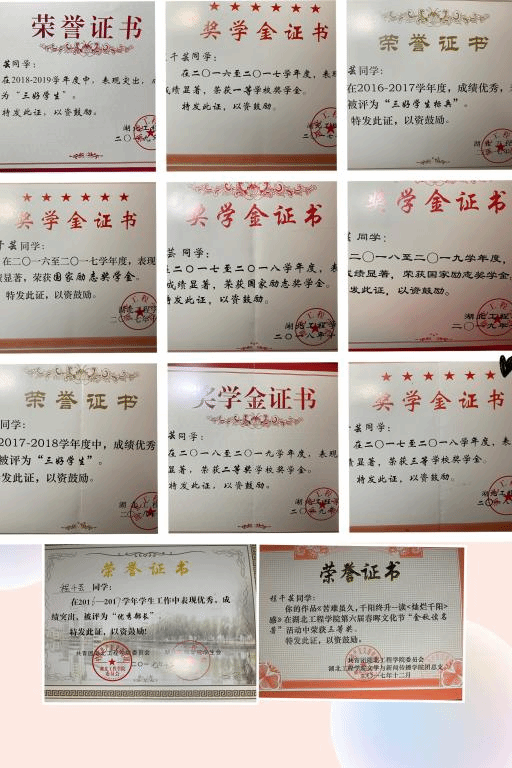 荣誉证书
芸同学：
在2018-2019学年度中，表现突出，
为“三好学生”。
特发此证，以资鼓励。
湖北工
二〇一九年
奖学金证书
千芸同学：
在二〇一六至二〇一七学年度，表现
成绩显著，荣获一等学校奖学金。
特发此证，以资鼓励。
湖北工程
二〇一七年
荣誉证书
芸同学：
在2016-2017学年度，成绩优秀，
被评为“三好学生标兵”。
特发此证，以资鼓励。
湖北工程
奖学金证书
千芸同学：
在二〇一六至二〇一七学年度，表现
绩显著，荣获国家励志奖学金。
特发此证，以资鼓励。
湖北工程学
二〇一七年
奖学金证书
芸 同学：
在二〇一七至二〇一八学年度，表
成绩显著，荣获国家励志奖学金。
特发此证，以资鼓励。
湖北工程学
二〇一八年十
奖学金证书
芸 同学：
二〇一八至二〇一九学年度，表
成绩显著，荣获国家励志奖学金
发此证，以资鼓励。
湖北工程
二〇一九年
荣誉证书
同学：
2017-2018学年度中，成绩优秀
被评为“三好学生”。
发此证，以资鼓励。
湖北工
二〇一八年
奖学金证书
芸同学：
在二〇一八至二〇一九学年度，表现
显著，荣获二等奖学校奖学金。
特发此证，以资鼓励。
湖北工程学
二〇一九年
奖学金证书
芸同学：
在二〇一七至二〇一八学年度，表
显著，荣获三等学校奖学金。
特发此证，以资鼓励。
湖北工程
二〇一八年
荣誉证书
程千芸 同学：
学年学生工作中表现优秀，成
绩突出，被评为“优秀部长”
特发此证，以资鼓励！
共青团湖北工程学院委员会
学生会
荣誉证书
程千芸同学：
你的作品《苦难虽久，千阳终升—读<灿烂千阳>
感》在湖北工程学院第六届春晖文化节“金秋读名
著”活动中荣获三等奖。
特发此证，以资鼓励。
共青团湖北工程学院委员会
湖北工程学院文学与新闻传播学院团总支
二〇一七年十二月